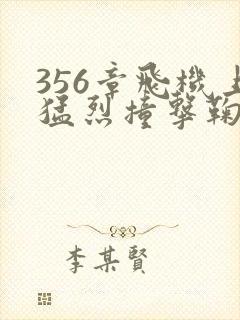 356章飛機上
猛烈撞擊鞠
李某賢